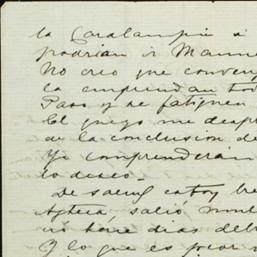 la Caralampia a
podrian ir Manue
No creo que conven
la emprendan tod
Paso y se fatiguen
El griego me desp
de la conclusion de
Ya comprenderán
lo deseo.
De salud estoy bie
Azteca, salió
ni hace dias deb
Y lo que es peor